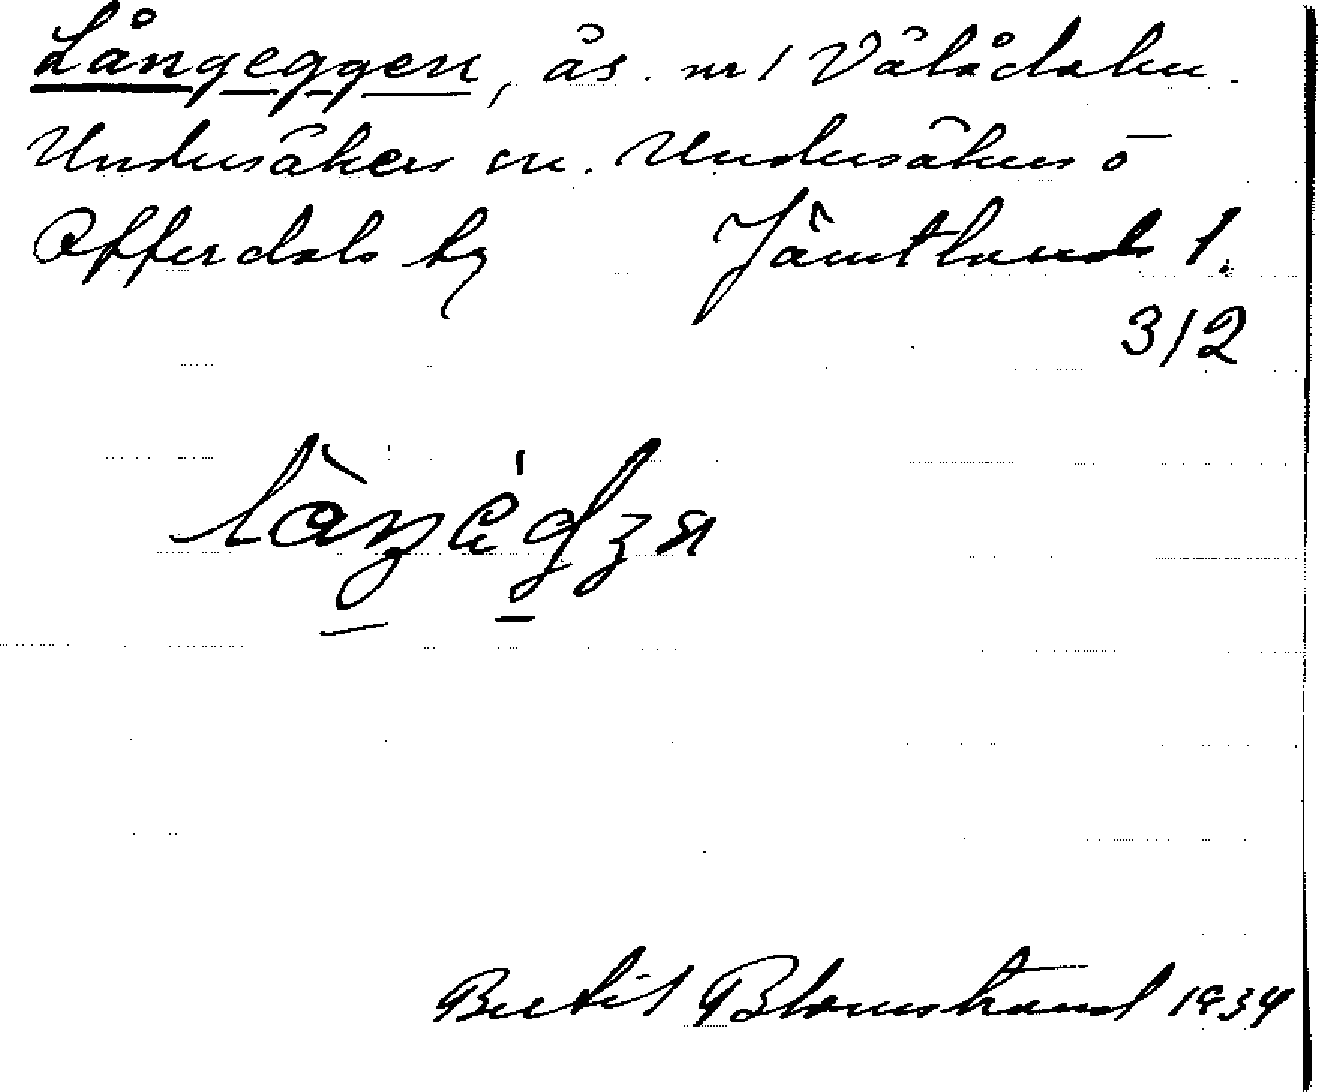 Långeggen, ås. nr 1 Vålådalen.
Undersåkers sn. Undersåkers o
Offerdals tg Jämtlands l.
312
Bertil Blomstrand 1934